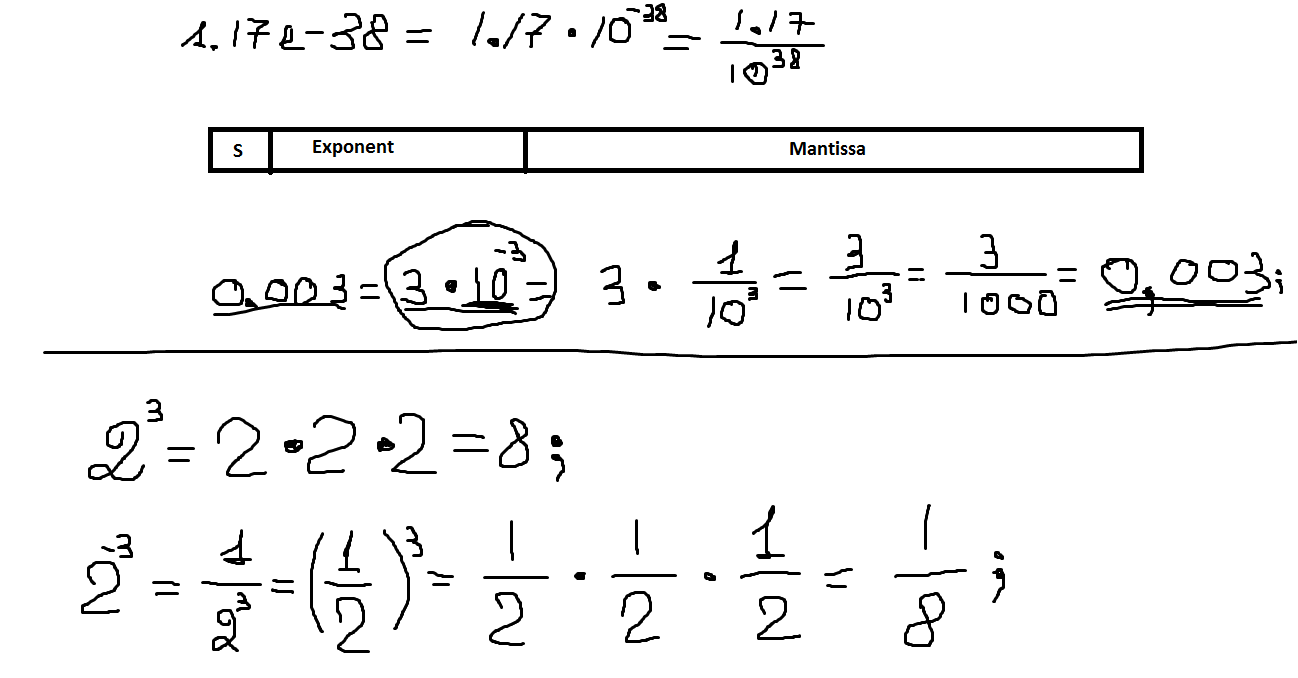 1.17e-38 = 1.17 · 10⁻³⁸ = 1.17/10³⁸
S Exponent Mantissa
0.003 = 3 · 10⁻³ = 3 · 1/10³ = 3/10³ = 3/1000 = 0,003;
2³ = 2 · 2 · 2 = 8;
2⁻³ = 1/2³ = (1/2)³ = 1/2 · 1/2 · 1/2 = 1/8;